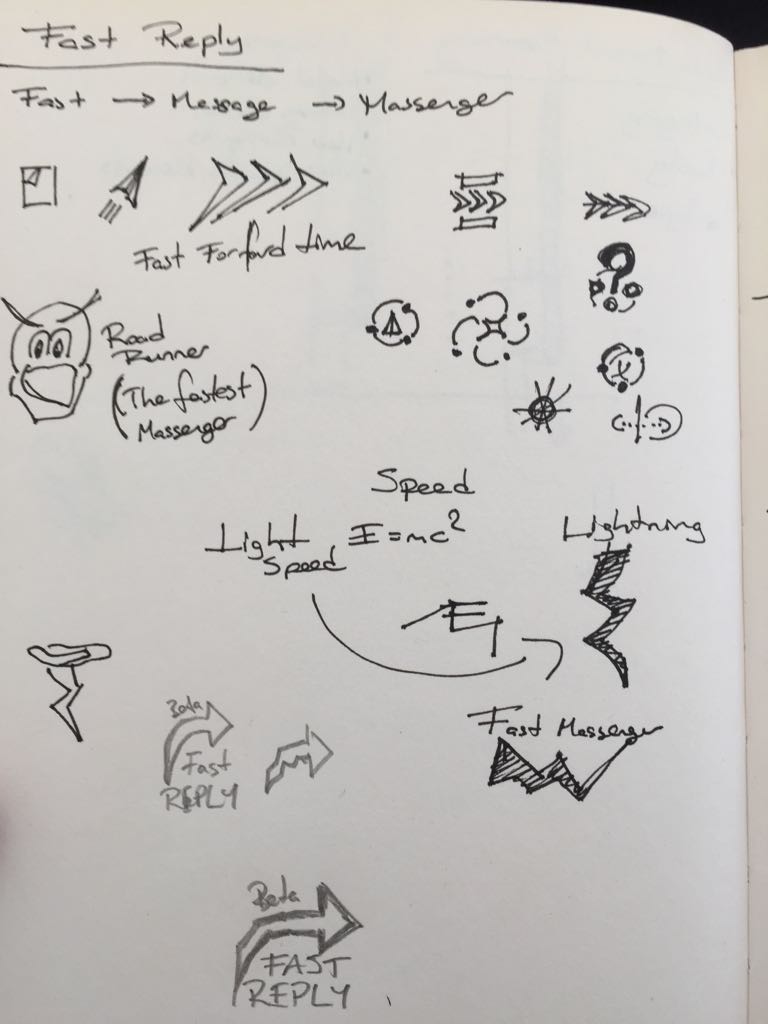 Fast Reply
Fast → Message → Massenger
Fast Forford time
Road
Runner
(The fastest
Massenger)
Speed
Light
Speed
E=mc²
Lightning
Beta
Fast
REPLY
Fast Messenger
Beta
FAST
REPLY